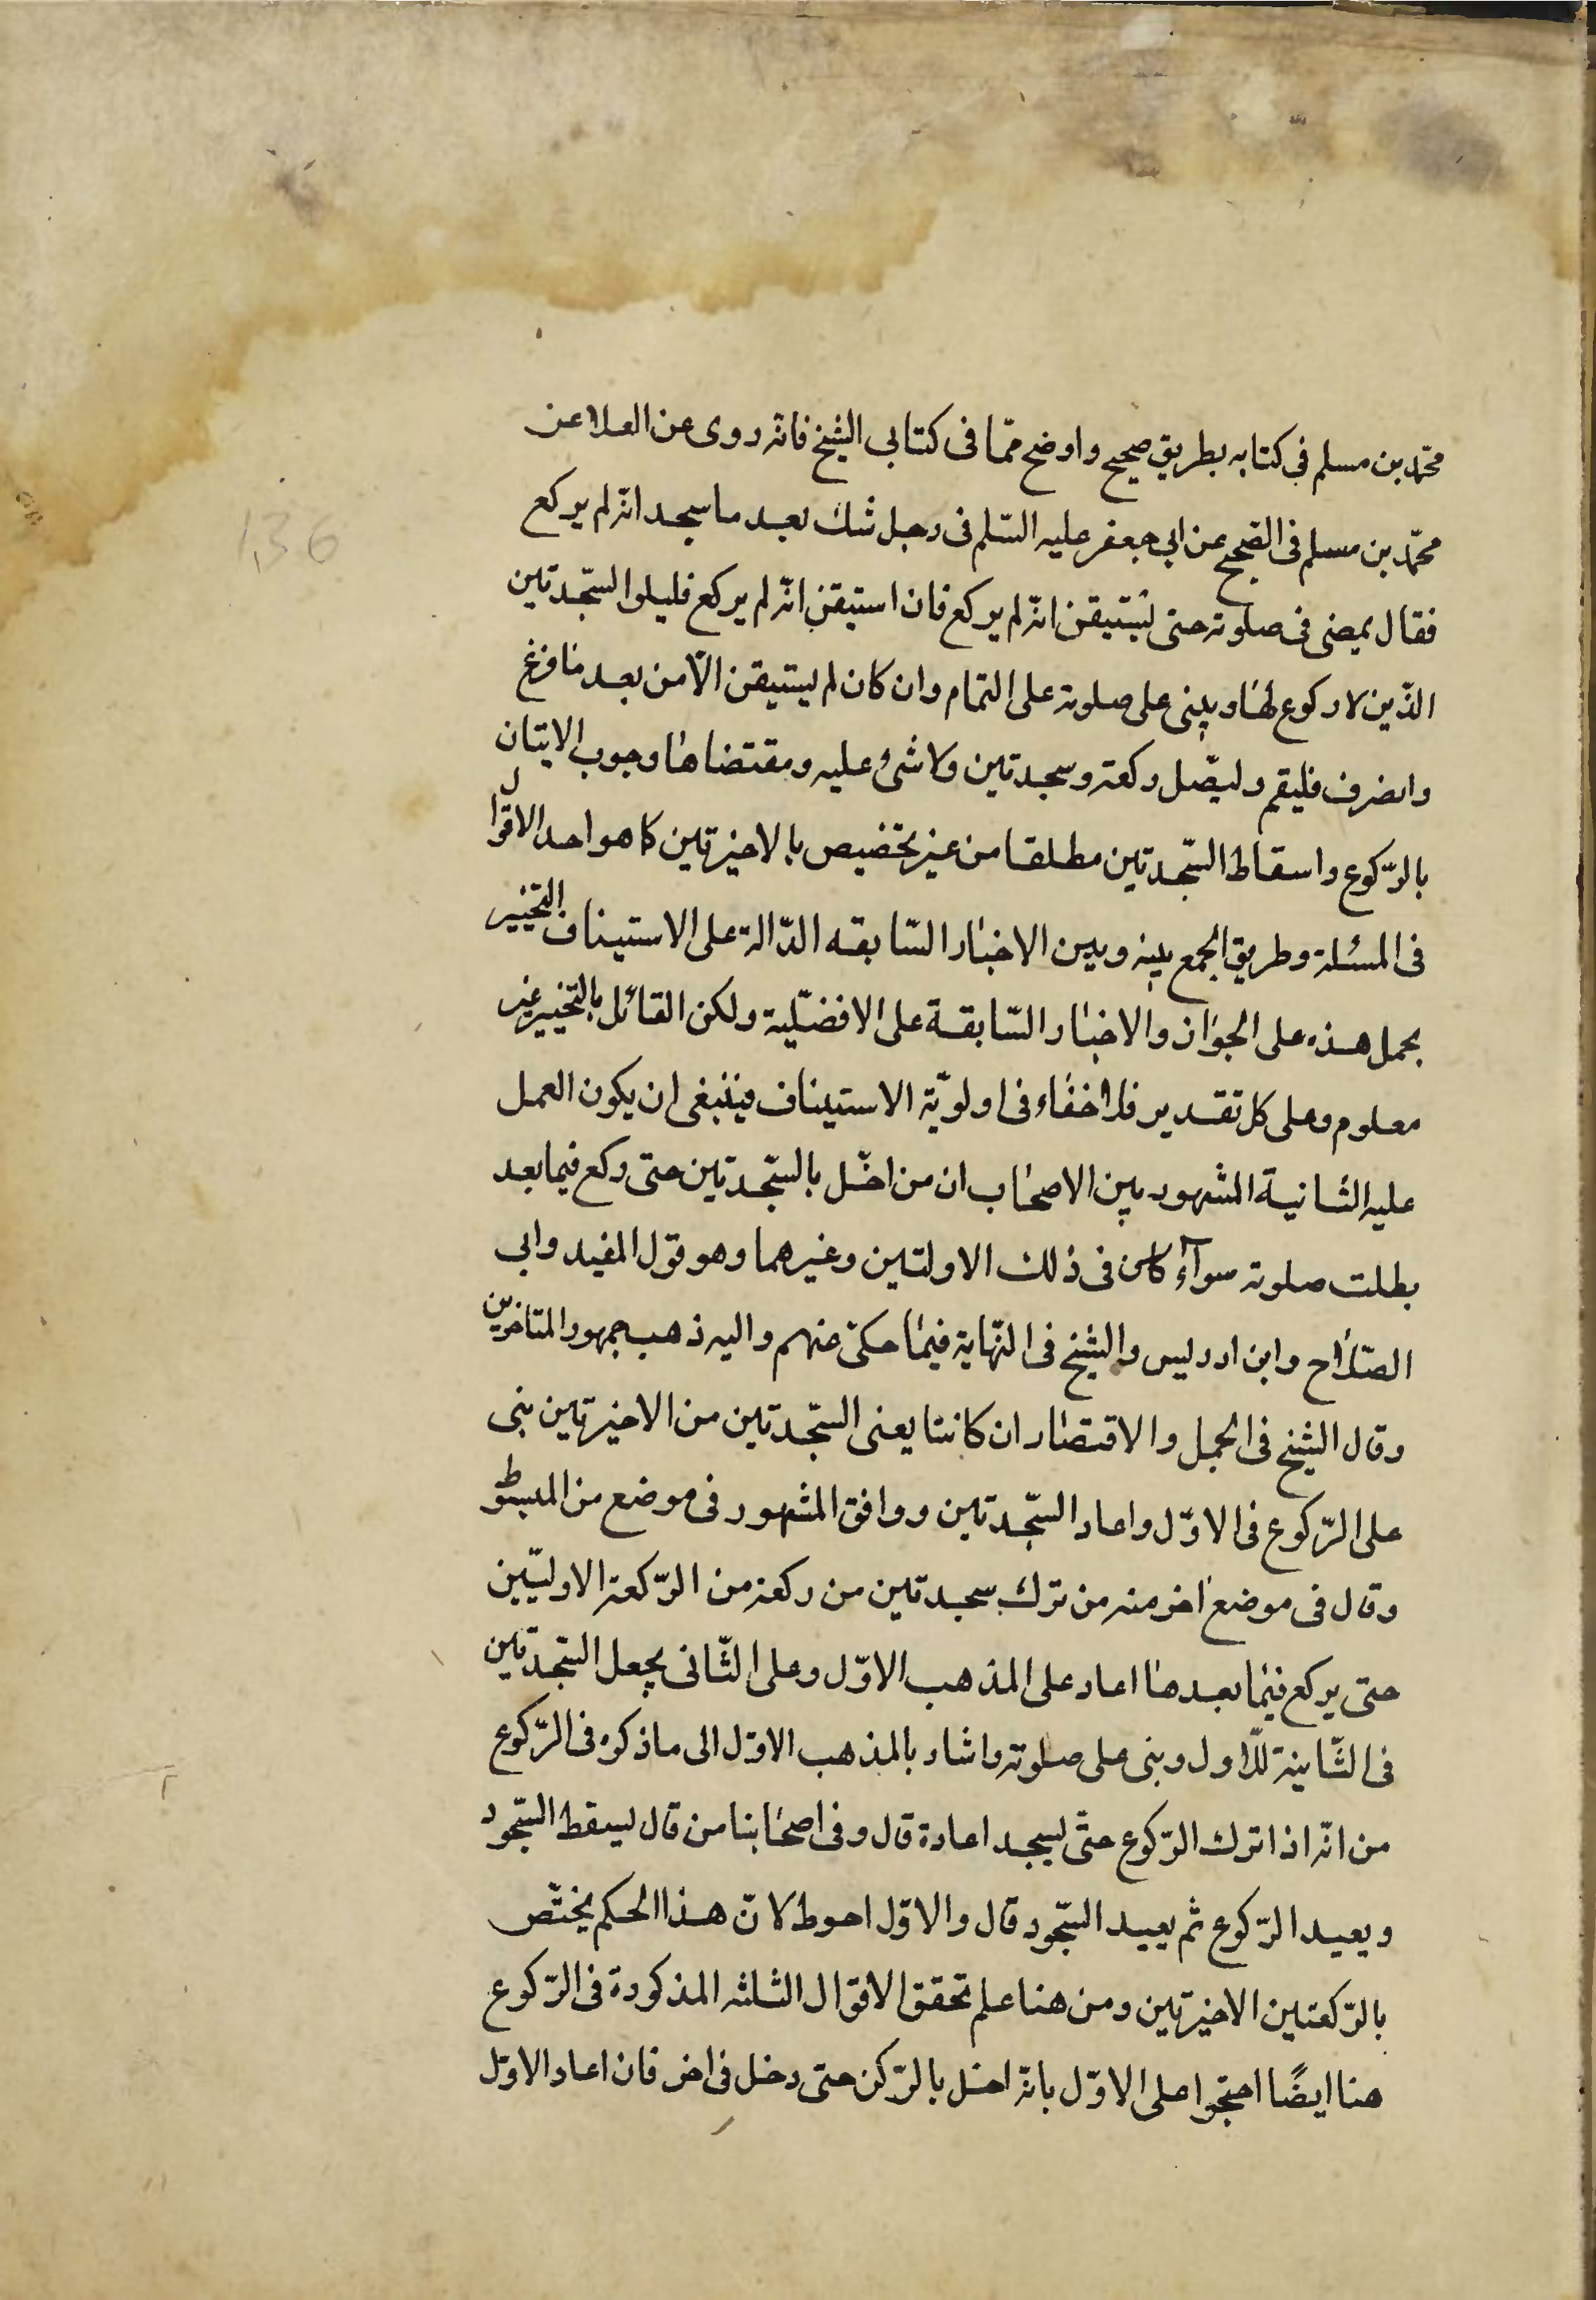 136
محمّد بن مسلم فى كتابه بطريق صحيح واوضح ممّا فى كتابى الشيخ فانّه روى عن العلا عن
محمّد بن مسلم فى الصّحيح عن ابى جعفر عليه السّلم فى رجل شك بعد ما سجد انّه لم يركع
فقال يمضى فى صلوته حتى يستيقن انّه لم يركع فان استيقن انّه لم يركع فليلوا السّجدتين
الذّين لا ركوع لهما ويبنى على صلوته على التمام وان كان لم يستيقن الّا من بعد ما فرغ
وانصرف فليقم وليصّل ركعة وسجدتين ولا شئ عليه ومقتضاها وجوب الاتيان
بالرّكوع واسقاط السّجدتين مطلقا من غير تخصيص بالاخيرتين كما هو احد الاقوال
فى المسئلة وطريق الجمع بينه وبين الاخبار السّابقه الدّالة على الاستيناف التخيير
بحمل هذه على الجواز والاخبار السّابقة على الافضليّة ولكن القائل بالتخيير غير
معلوم وعلى كل تقدير فلا خفاء فى اولويّة الاستيناف فينبغى ان يكون العمل
عليه الثانية المشهور بين الاصحاب ان من اخّل بالسّجدتين حتى ركع فيما بعد
بطلت صلوته سوآء كان فى ذلك الاولتين وغيرهما وهو قول المفيد وابى
الصّلاح وابن ادريس والشيخ فى النّهاية فيما حكى عنهم واليه ذهب جمهور المتاخرين
وقال الشيخ فى الجمل والاقتصار ان كانتا يعنى السّجدتين من الاخيرتين بنى
على الرّكوع فى الاوّل واعاد السّجدتين ووافق المشهور فى موضع من المبسوط
وقال فى موضع اخر منه من ترك سجدتين من ركعة من الرّكعة الاوليّين
حتى يركع فيما بعدها اعاد على المذهب الاوّل وعلى الثّانى يجعل السّجدتين
فى الثّانية للاول وبنى على صلوته واشار بالمذهب الاوّل الى ما ذكره فى الرّكوع
من انّه اذا ترك الرّكوع حتّى يسجد اعادة قال وفى اصحابنا من قال يسقط السّجود
ويعيد الرّكوع ثم يعيد السّجود قال والاوّل احوط لانّ هذا الحكم يختّص
بالرّكعتين الاخيرتين ومن هنا علم تحقق الاقوال الثلثه المذكورة فى الرّكوع
هنا ايضًا احتجوا على الاوّل بانّه اخل بالرّكن حتى دخل فى اخر فان اعاد الاوّل